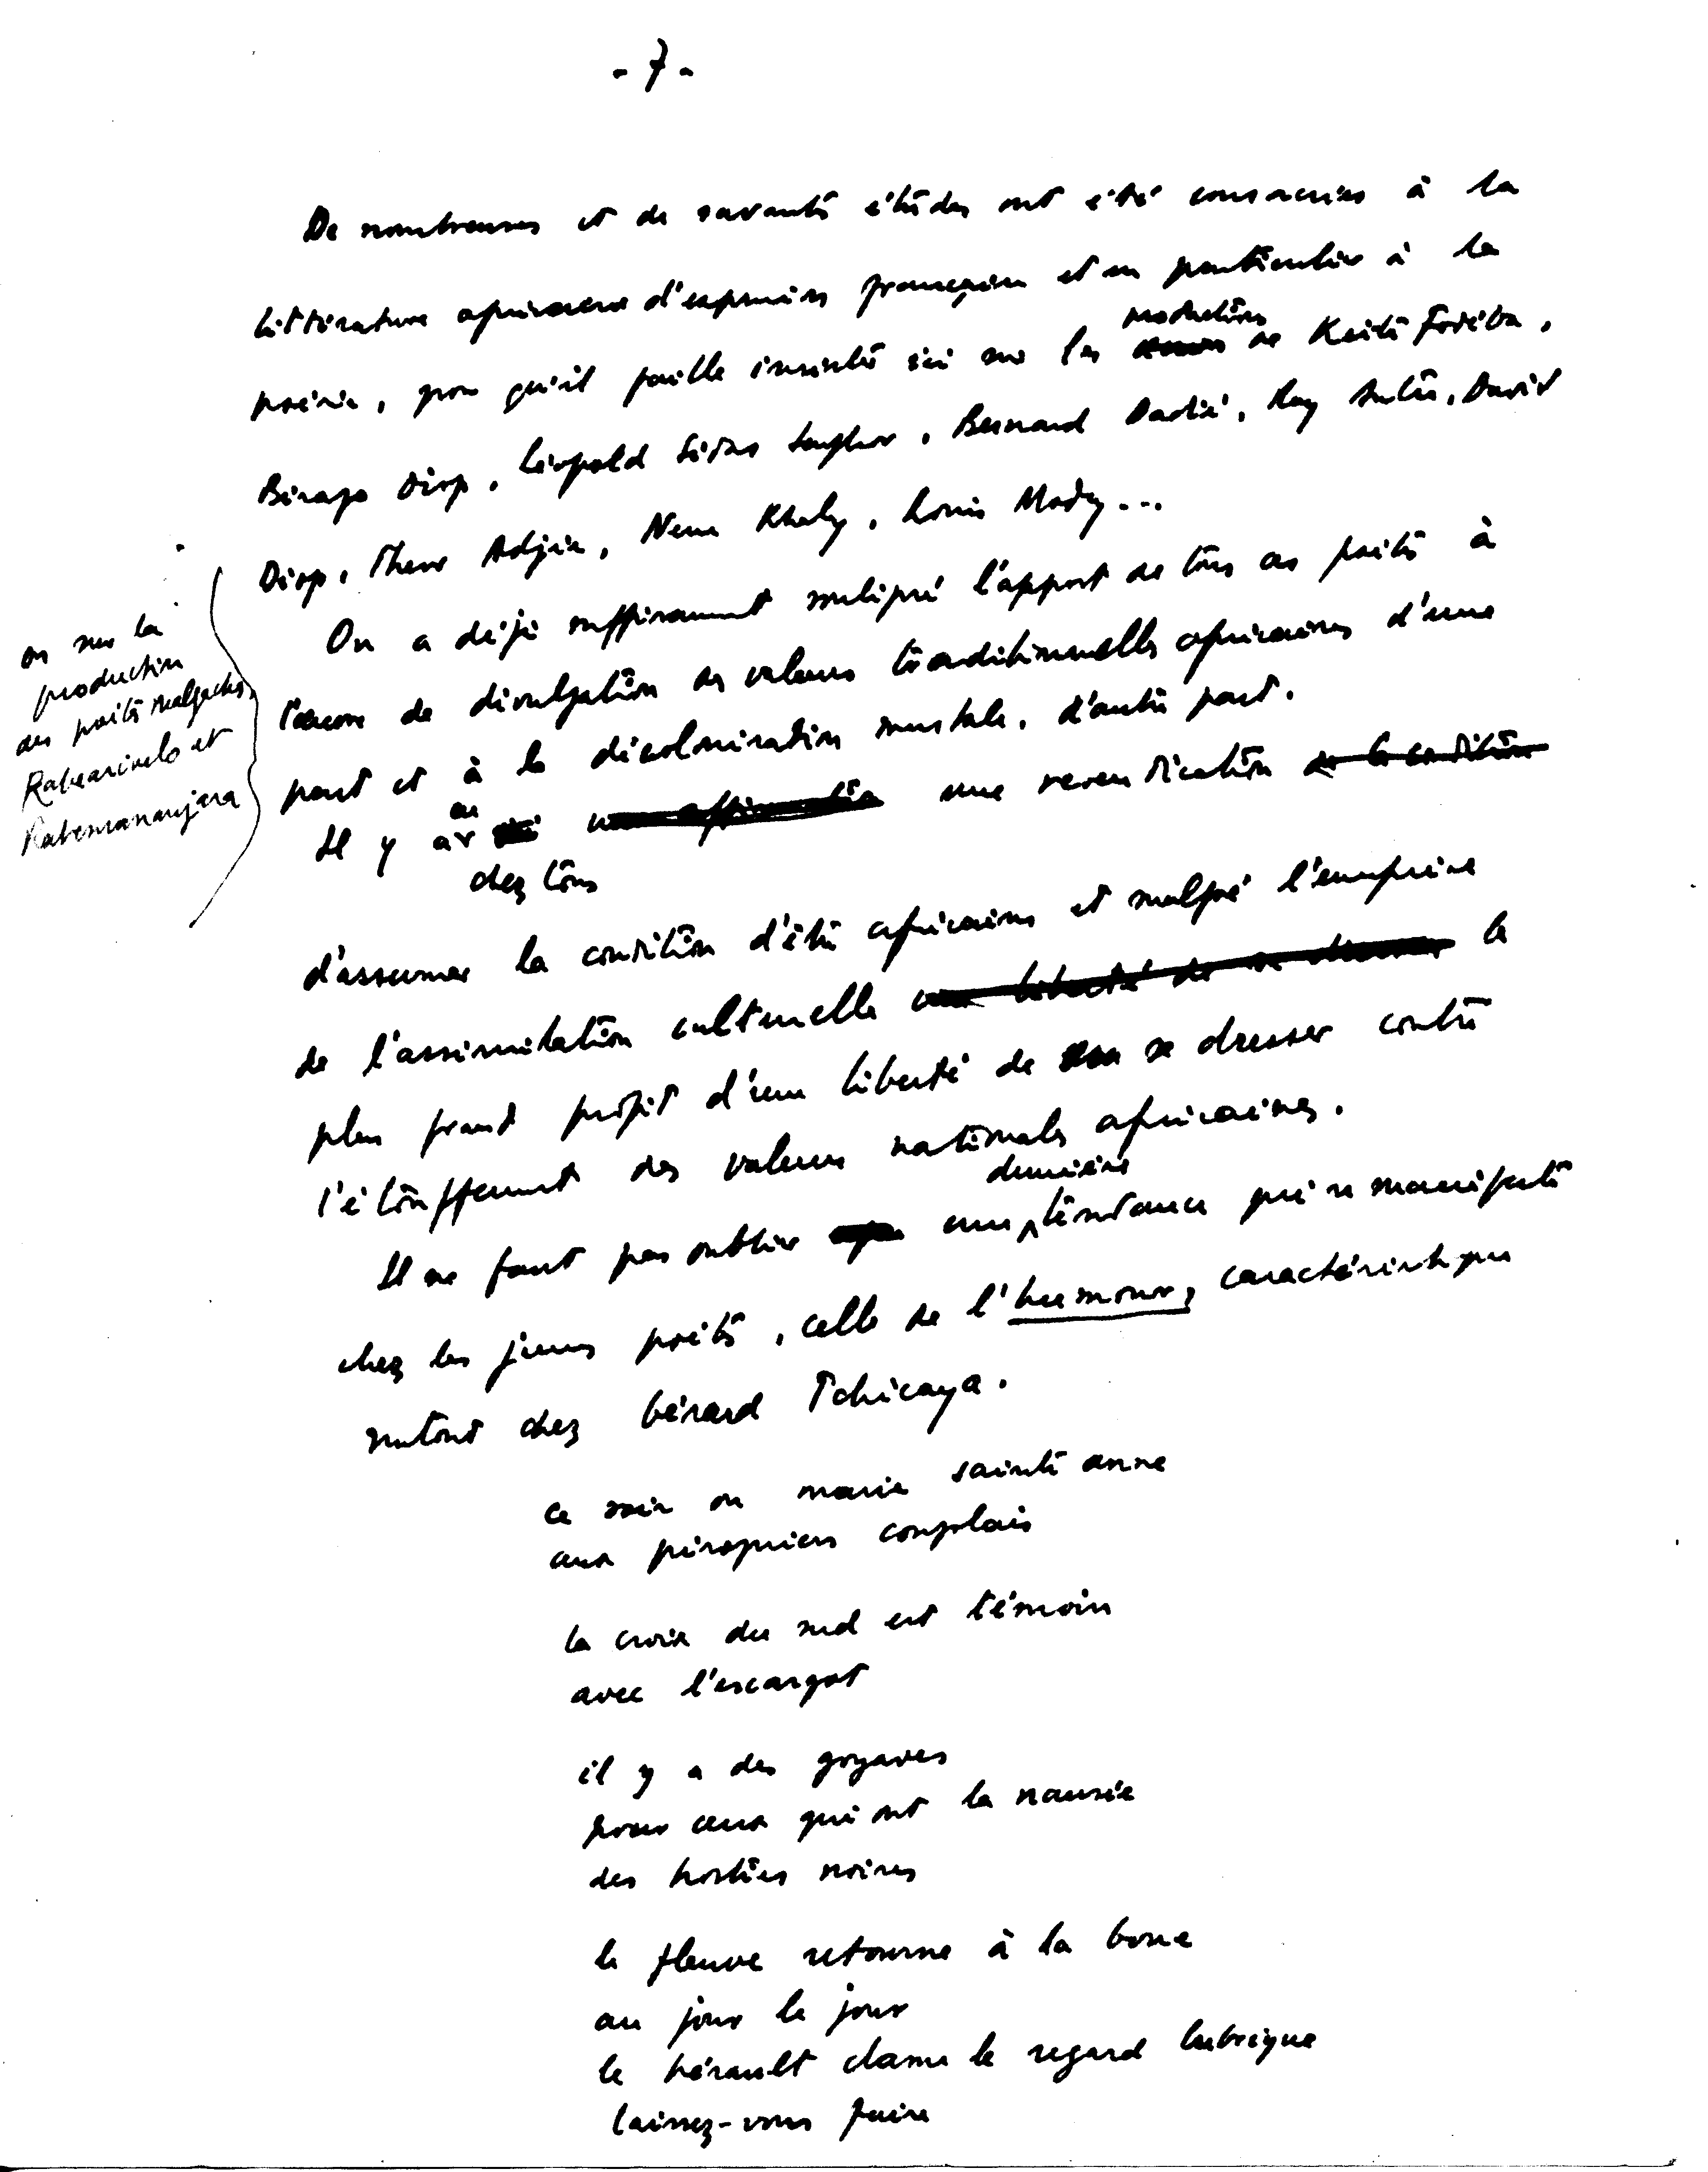 - 7 -
De nombreuses et de savantes études ont été consacrées à la
littérature africaine d'expression française et en particulier à la
poésie, pour qu'il faille insister ici sur les productions de Keita Fodéba,
Birago Diop, Léopold Sédar Senghor, Bernard Dadié, Ray Autra, David
Diop, Adjia, Nene Khaly, Louis Mody...
ou sur la
production
des poètes malgaches
Rabearivelo et
Rabemananjara
On a déjà suffisamment souligné l'apport de tous ces poètes à
l'œuvre de divulgation des valeurs traditionnelles africaines d'une
part et à la décolonisation mentale, d'autre part.
Il y a chez tous une revendication
d'assumer la condition d'être africains et malgré l'emprise
de l'assimilation culturelle le
plus grand profit d'une liberté de se dresser contre
l'étouffement des valeurs nationales africaines.
Il ne faut pas oublier une dernière tendance qui se manifeste
chez les jeunes poètes, celle de l'humour, caractéristique
surtout chez Gérard Tchicaya.
ce soir ou marie sainte anne
aux piroguiers congolais
la croix du sud est témoin
avec l'escargot
il y a des goyaves
pour ceux qui ont la nausée
des hosties noires
le fleuve retourne à la boue
au jour le jour
le hérault clame le regard lubrique
laissez-vous faire